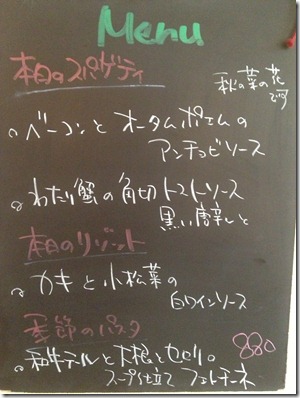 Menu
本日のスパゲティ
秋の菜の花
ベーコンと オータムポエムの
アンチョビソース
わたり蟹の角切トマトソース
黒い唐辛しと
本日のリゾット
カキと小松菜の
白ワインソース
季節のパスタ
880
和牛テールと大根とセロリの
スープ仕立て フェトチーネ